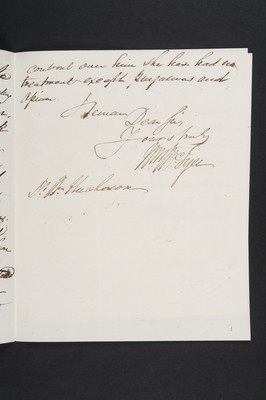 control over him She has had no
treatment except purgatives and
Opium
I remain
Dear Sir
Yours truly
Wm
Dr Wm Hutcheson